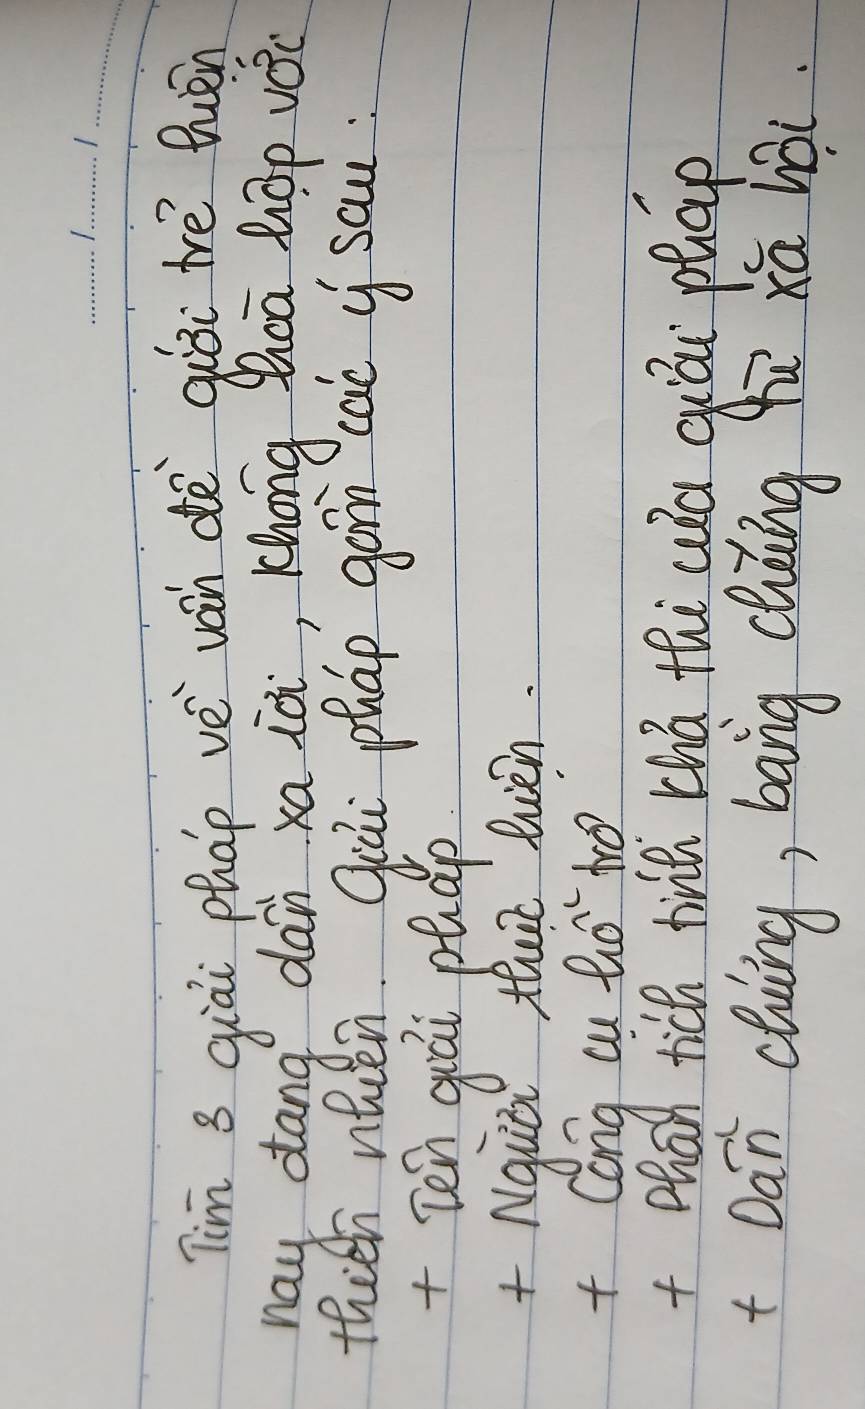 ....... / ....... / .......
Tìm 3 giải pháp về vấn đề giới trẻ hiện
nay đang dần xa rời, không hòa hợp với
thiên nhiên. Giải pháp gồm các ý sau:
+ Tên giải pháp
+ Người thực hiện.
+ Công cụ hỗ trợ
+ Phân tích tính khả thi của giải pháp
+ Dẫn chứng, bằng chứng từ xã hội.